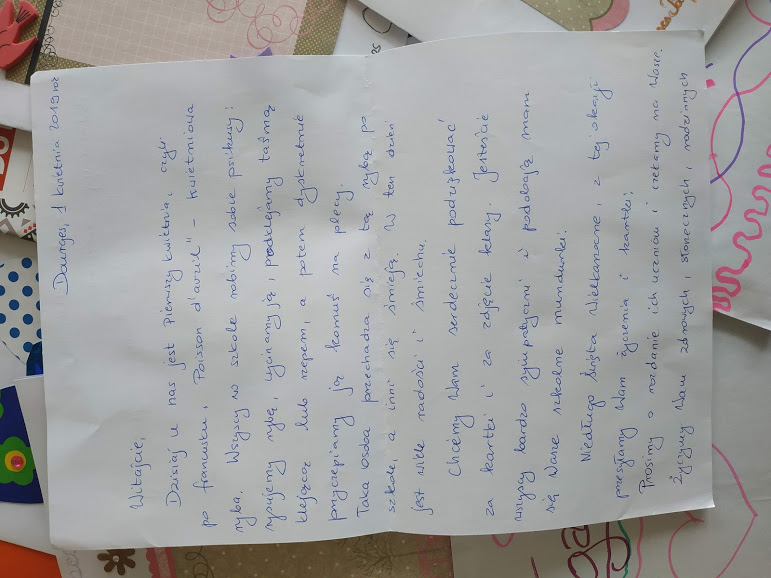 Dourges, 1 kwietnia 2019 rok
Witajcie,
Dzisiaj u nas jest Pierwszy kwietnia, czyli
po francusku, Poisson d'avril" - kwietniowa
ryba. Wszyscy w szkole robimy sobie psikusy:
rysujemy rybę, wycinamy ją, podklejamy taśmą
klejącą lub rzepem, a potem dyskretnie
przyczepiamy ją komuś na plecy.
Taka osoba przechadza się z tą rybą po
szkole, a inni się śmieją. W ten dzień
jest wiele radości i śmiechu.
Chcemy Wam serdecznie podziękować
za kartki i za zdjęcie klasy. Jesteście
wszyscy bardzo sympatyczni i podobają nam
się Wasze szkolne mundurki.
Niedługo Święta Wielkanocne, z tej okazji
przesyłamy Wam życzenia i kartki.
Prosimy o rozdanie ich uczniom i czekamy na Wasze.
Życzymy Wam zdrowych, słonecznych, rodzinnych